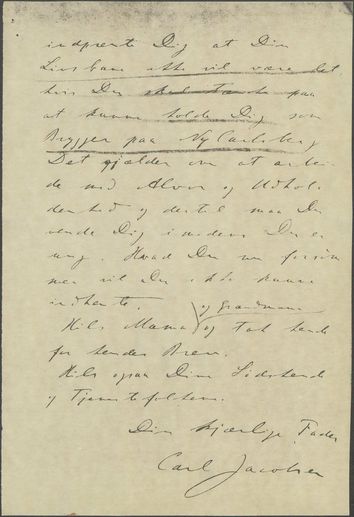 indprente Dig at Din
Livsbane ikke vil være let
hvis Du skal tænke paa
at kunne holde Dig som
Brygger paa Ny Carlsberg
Det gjælder om at arbei-
de med Alvor og Udhol-
denhed og dertil maa Du
vænde Dig imedens Du er
ung. Hvad Du nu forsøm
mer vil Du ikke kunne
indhente.
Hils Mama og Grandmama og Tak hende
for hendes Brev.
Hils ogsaa Dine Sødskende
og Tjenestefolkene.
Din kjærlige Fader
Carl Jacobsen